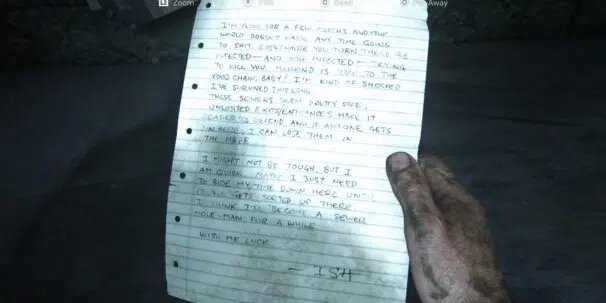 Zoom
Read
Away
I'M GONE FOR A FEW MONTHS AND THE
WORLD DOESN'T WASTE ANY TIME GOING
TO SHIT. EVERYWHERE YOU TURN THERE ARE
INFECTED — AND NON INFECTED — TRYING
TO KILL YOU. MANKIND IS BACK TO THE
FOOD CHAIN, BABY! I'M KIND OF SHOCKED
I'VE SURVIVED THIS LONG.
THESE SEWERS SEEM PRETTY SAFE.
LIMITED EXITS/ENTRANCES MAKE IT
EASIER TO DEFEND. AND IF ANYONE GETS
IN HERE, I CAN LOSE THEM IN
THE MAZE.
I MIGHT NOT BE TOUGH, BUT I
AM QUICK. MAYBE I JUST NEED
TO BIDE MY TIME DOWN HERE UNTIL
IT ALL GETS SORTED UP THERE.
I THINK I'LL BECOME A SEWER
MOLE-MAN FOR A WHILE.
WISH ME LUCK
— ISH